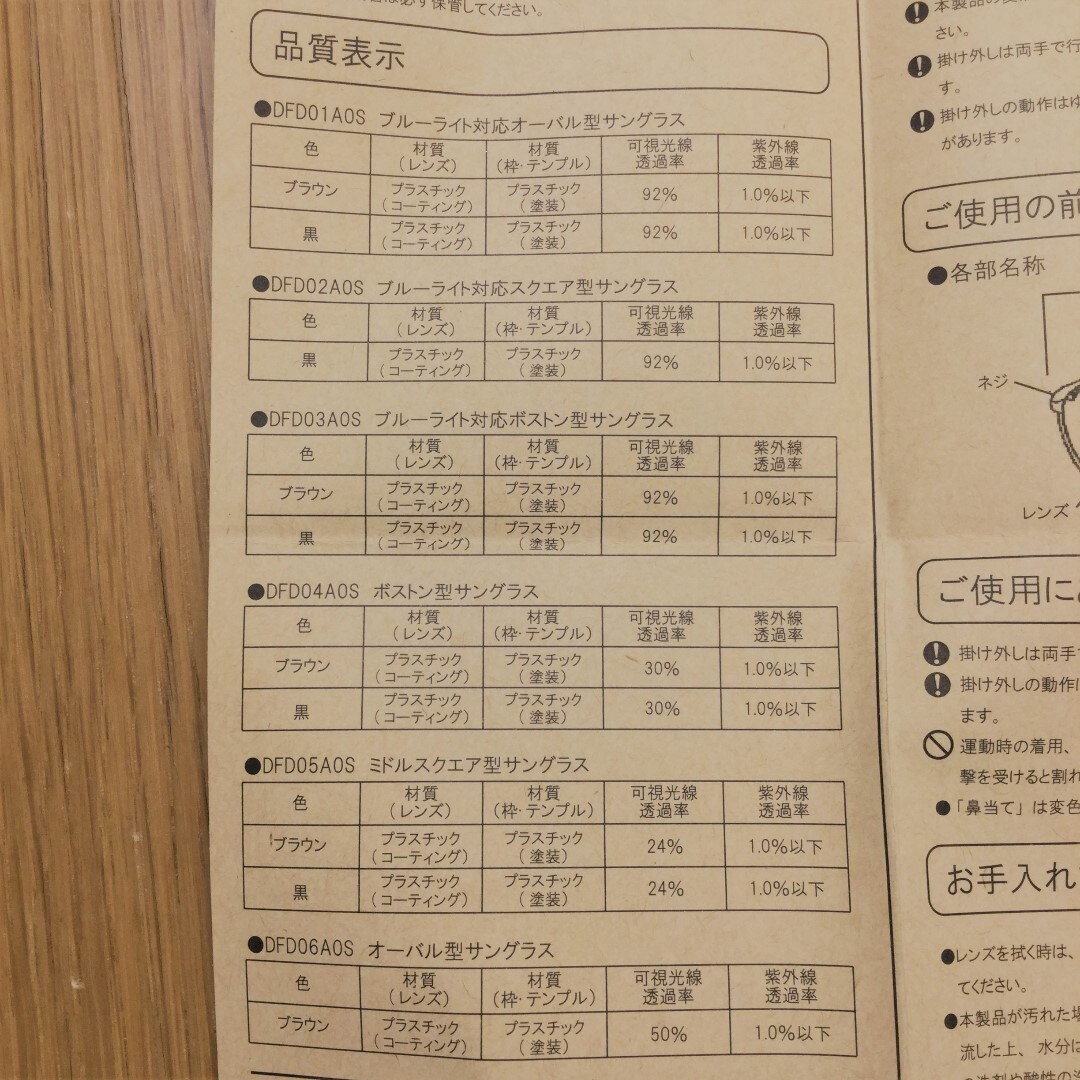 は必ず保管してください。
品質表示
●DFD01A0S ブルーライト対応オーバル型サングラス
色 材質(レンズ) 材質(枠・テンプル) 可視光線透過率 紫外線透過率
ブラウン プラスチック(コーティング) プラスチック(塗装) 92% 1.0%以下
黒 プラスチック(コーティング) プラスチック(塗装) 92% 1.0%以下
●DFD02A0S ブルーライト対応スクエア型サングラス
色 材質(レンズ) 材質(枠・テンプル) 可視光線透過率 紫外線透過率
黒 プラスチック(コーティング) プラスチック(塗装) 92% 1.0%以下
●DFD03A0S ブルーライト対応ボストン型サングラス
色 材質(レンズ) 材質(枠・テンプル) 可視光線透過率 紫外線透過率
ブラウン プラスチック(コーティング) プラスチック(塗装) 92% 1.0%以下
黒 プラスチック(コーティング) プラスチック(塗装) 92% 1.0%以下
●DFD04A0S ボストン型サングラス
色 材質(レンズ) 材質(枠・テンプル) 可視光線透過率 紫外線透過率
ブラウン プラスチック(コーティング) プラスチック(塗装) 30% 1.0%以下
黒 プラスチック(コーティング) プラスチック(塗装) 30% 1.0%以下
●DFD05A0S ミドルスクエア型サングラス
色 材質(レンズ) 材質(枠・テンプル) 可視光線透過率 紫外線透過率
ブラウン プラスチック(コーティング) プラスチック(塗装) 24% 1.0%以下
黒 プラスチック(コーティング) プラスチック(塗装) 24% 1.0%以下
●DFD06A0S オーバル型サングラス
色 材質(レンズ) 材質(枠・テンプル) 可視光線透過率 紫外線透過率
ブラウン プラスチック(コーティング) プラスチック(塗装) 50% 1.0%以下
本製品の
さい。
掛け外しは両手で行
す。
掛け外しの動作はゆ
があります。
ご使用の前
●各部名称
ネジ
レンズ
ご使用に
掛け外しは両手
掛け外しの動作は
ます。
運動時の着用、
撃を受けると割れ
●「鼻当て」は変色
お手入れ
●レンズを拭く時は、
てください。
●本製品が汚れた場
流した上、水分は